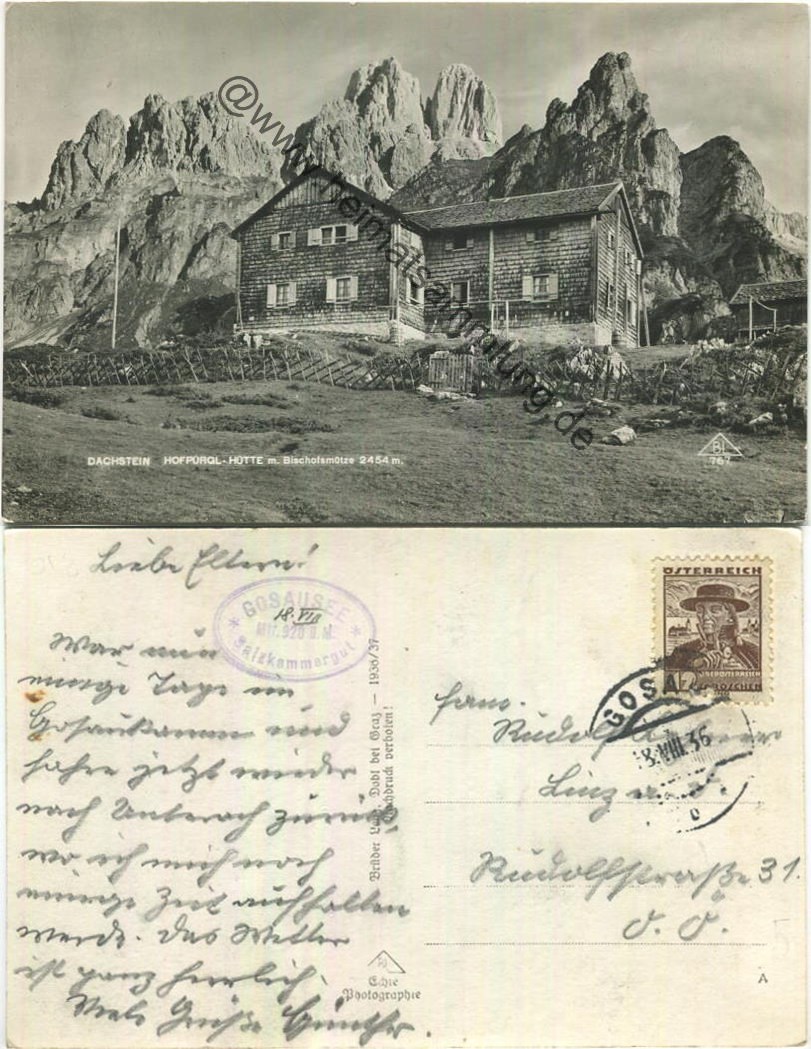 @www.heimatsammlung.de
DACHSTEIN HOFPÜRGL-HÜTTE m. Bischofsmütze 2454 m.
BL
767
Liebe Eltern!
* GOSAUSEE *
18. VIII
Salzkammergut
War nun
einige Tage im
Gosaukamm und
fahre jetzt wieder
nach Unterach zurück,
wo ich mich noch
einige Zeit aufhalten
werde. Das Wetter
ist ganz herrlich.
Viele Grüße Günther.
Brüder Dobl bei Graz — 1936/37
Nachdruck verboten!
Echte
Photographie
ÖSTERREICH
12
OBERÖSTERREICH
GOSA
8.VIII.36
Fam.
Rudolf
Linz a. d.
Rudolfstraße 31.
O. Ö.
A